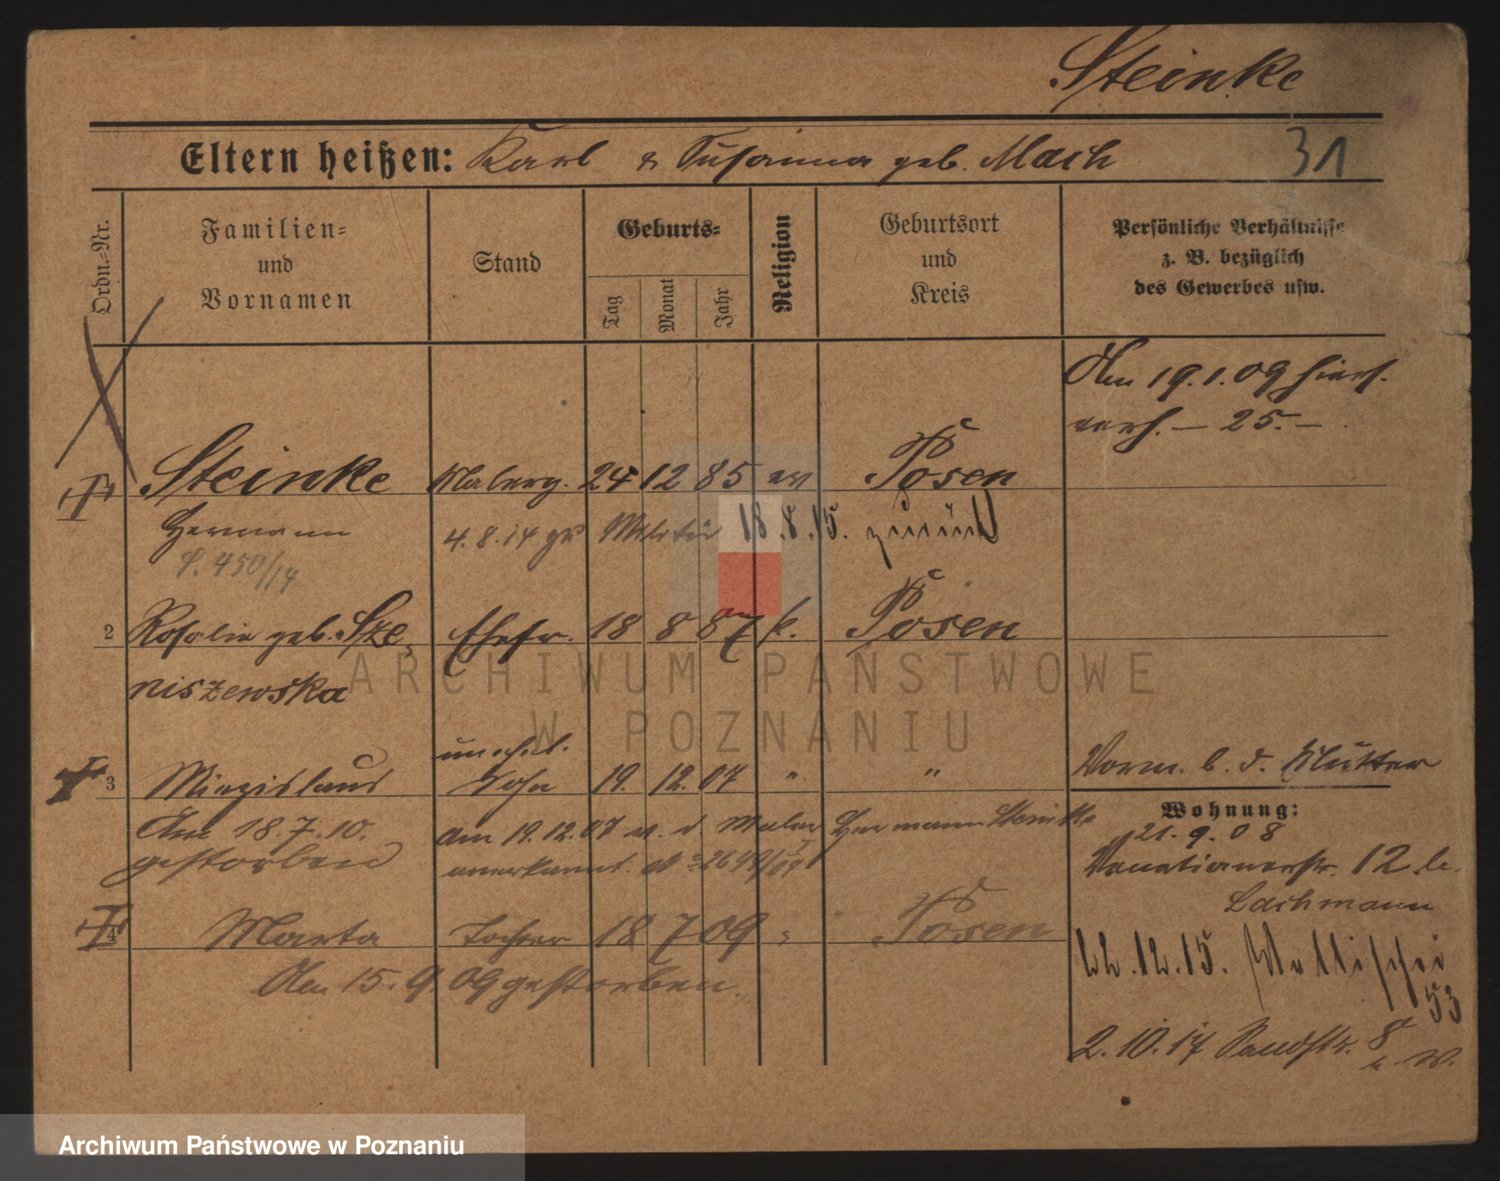 Steinke
Eltern heißen: Karl & Susanna geb. Mach 31
Ordn.-Nr.
Familien-
und
Vornamen
Stand
Geburts-
Tag
Monat
Jahr
Religion
Geburtsort
und
Kreis
Persönliche Verhältnisse
z. B. bezüglich
des Gewerbes usw.
Am 19.1.09 hier
verh. — 25. —
Steinke 24 12 85 ev Posen
Hermann 4.8.14 Militär 18.8.15. zurück
P. 450/14
2 Rosalie geb. Sze- Ehefr. 18 8 87 k. Posen
niszewska
unehel.
3 Miezislaus Sohn 19. 12. 07 " " Vorm. b. d. Mutter
Am 18.7.10. am 19.12.07 v. d. Maler Hermann Steinke
gestorben anerkannt.
Wohnung:
21.9.08
Venetianerstr. 12 b.
Lachmann
4 Marta Tochter 18 7 09 " Posen
Am 15.9.09 gestorben.
22.12.15. Wallischei
53
2.10.17 Sandstr. 8
b. W.
ARCHIWUM PAŃSTWOWE
W POZNANIU
Archiwum Państwowe w Poznaniu